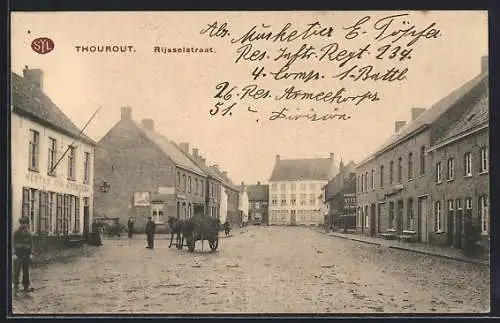 SYL
THOUROUT. Rijsselstraat.
Abs. Musketier E. Töpfer
Res. Inftr. Regt 234.
4. Comp. 1. Battl
26. Res. Armeekorps
51. " Division